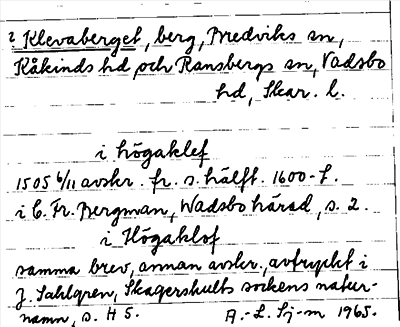 ? Klevaberget, berg, Bredviks sn,
Kåkinds hd och Ransbergs sn, Vadsbo
hd, Skar. l.
i högaklef
1505 6/11 avskr. fr. s. hälft. 1600-t.
i C. Fr. Bergman, Wadsbo härad, s. 2.
i Högaklof
samma brev, annan avskr., avtryckt i
J. Sahlgren, Skagershults sockens natur-
namn, s. H 5.
A.-L. Sj-m 1965.